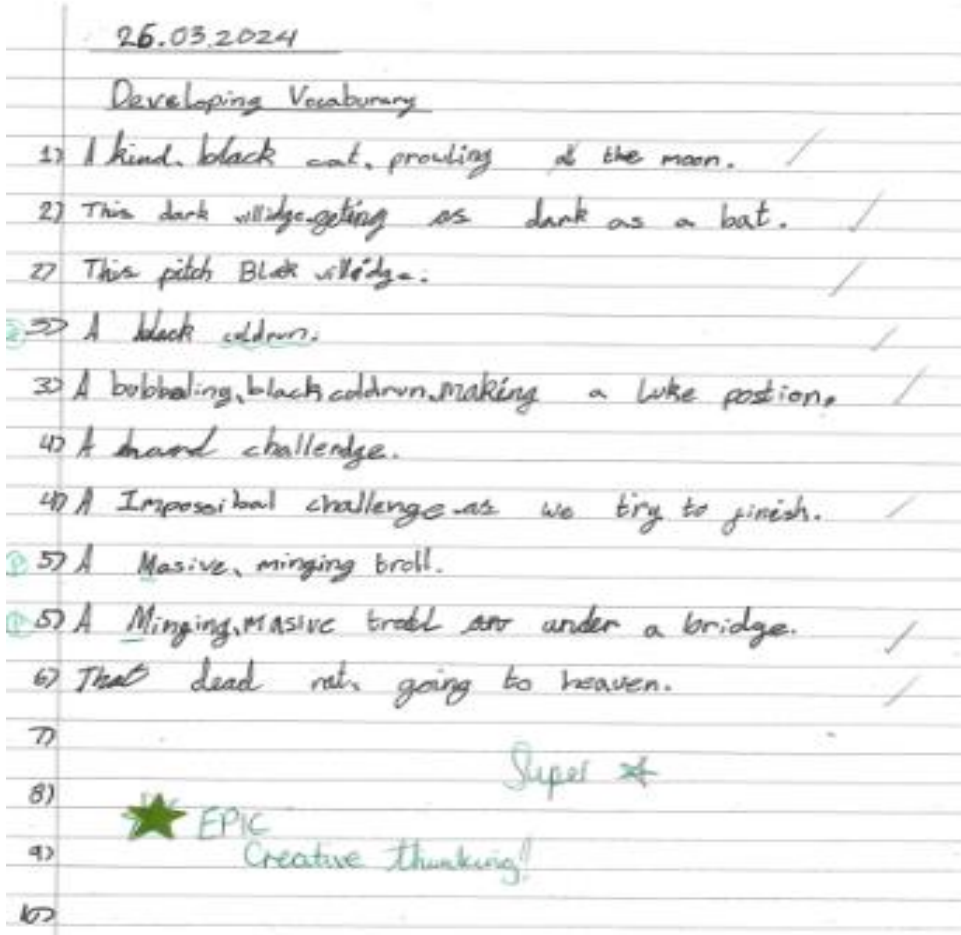 26.03.2024
Developing Vocabunary
1) A kind, black cat, prowling at the moon.
2) This dark villidge, geting as dark as a bat.
2) This pitch Black villidge.
3) A black coldrun.
3) A bubbaling, black coldrun, making a Luke postion.
4) A hard challendge.
4) A Impossibal challenge as we try to finish.
5) A Masive, minging troll.
5) A Minging, Masive troll under a bridge.
6) That dead rat, going to heaven.
7)
Super
8)
EPIC
9) Creative thinking!
10)